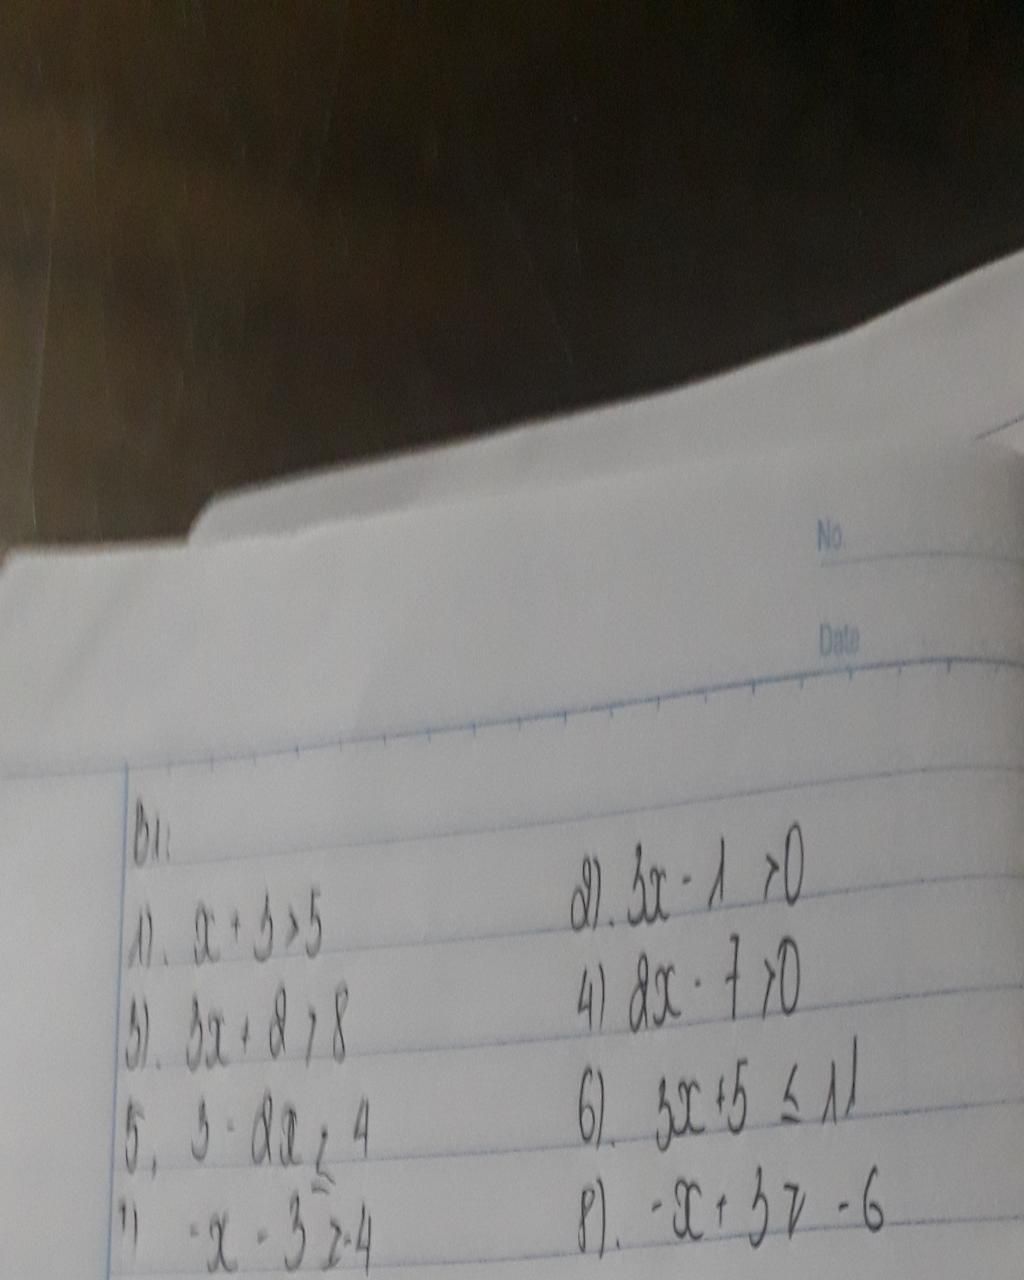 No.
Date
B1:
1). x + 3 > 5 2). 3x - 1 > 0
3). 3x + 2 > 8 4) 2x - 7 > 0
5, 3 - 2x ≤ 4 6). 3x + 5 ≤ 11
7) -x - 3 ≥ -4 8). -x + 3 ≥ -6